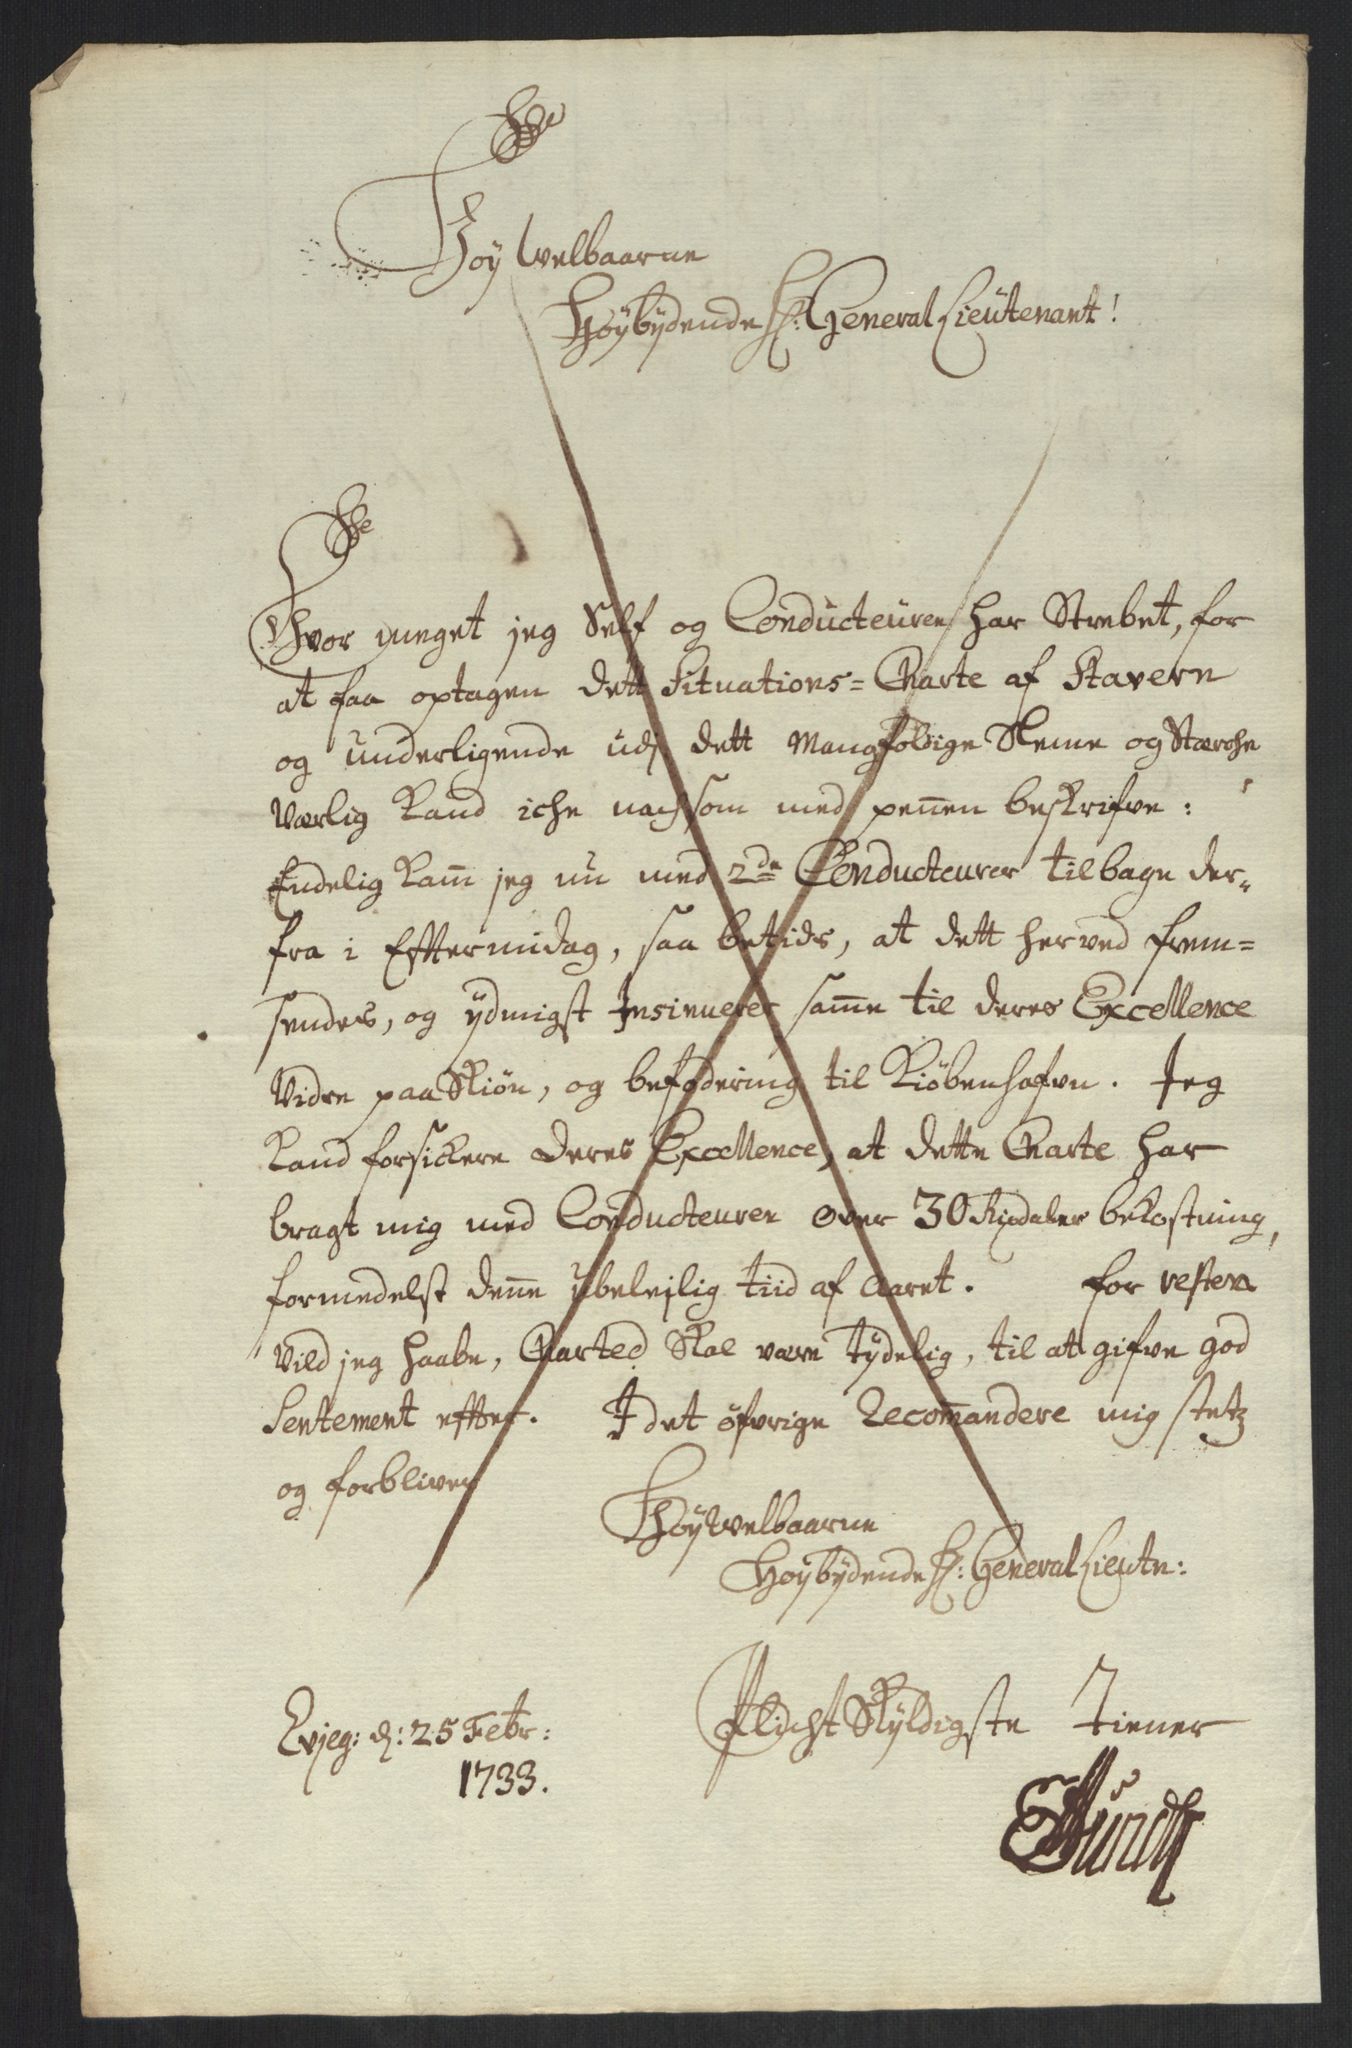 Høy Welbaarne
Høybydende Hr: General Lieutenant!
Hvor meget jeg Self og Conducteuren har Strebet, for
at faa optagen dett Situations= Charte af Stavern
og underligende udj dett Mangfoldige Skiene og Stærche
Værlig kand iche nochsom med pennen beskrifve:
Endelig kam jeg nu med 2de Conducteurer tilbage der„
fra i Efftermidag, saa betids, at dett herved frem=
sendes, og ydmigst Insinuerer samme til deres Excellence
Vidre paa Skiøn, og befodering til Kiøbenhafvn. Jeg
kand forsickere deres Excellence, at dette Charte har
bragt mig med Conducteuren over 30 Rixdaler bekostning,
formedelst denne ubelejlig tiid af Aaret. for resten
Vild jeg haabe, Charted Skal være tydelig, til at gifve god
Sentement effter. I det øfvrige Recommandere mig stetz
og forbliver
Høywelbaarne
Høybydende Hr: General Lieutn:
Plicht Skyldigste Tiener
Evjeg: d: 25 Febr:
1733.